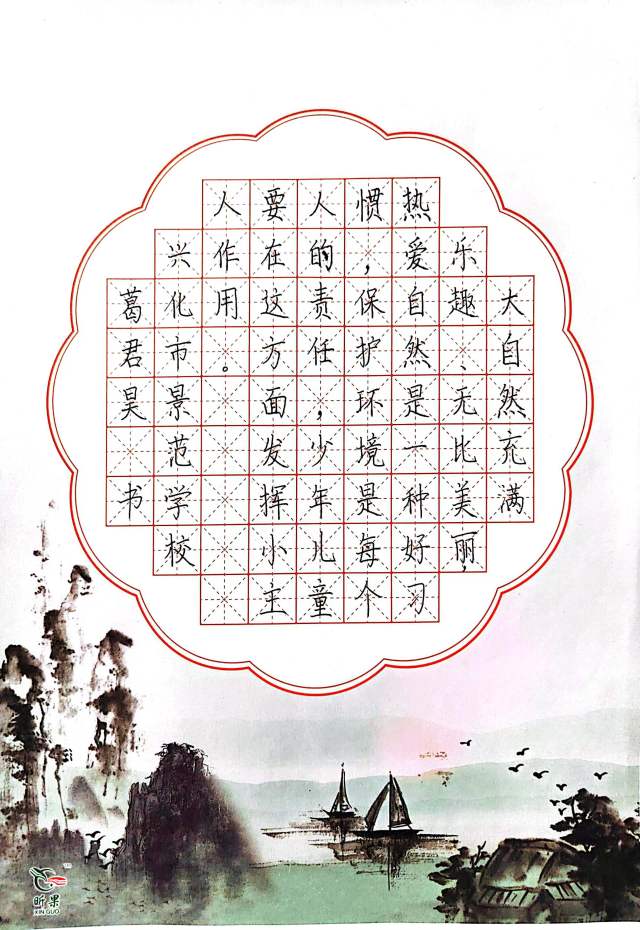 大自然充满
乐趣、无比美丽,
热爱自然是一种好习
惯,保护环境是每个
人的责任,少年儿童
要在这方面发挥小主
人作用。
兴化市景范学校
葛君昊 书
昕果
XIN GUO
TM